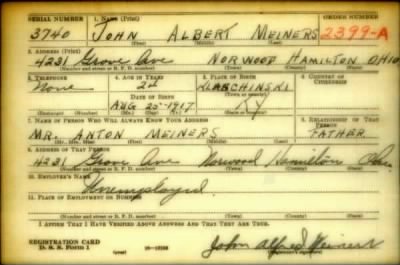 SERIAL NUMBER 1. NAME (Print) ORDER NUMBER
3740 JOHN ALBERT MEINERS 2399-A
(First) (Middle) (Last)
2. ADDRESS (Print)
4231 Grove Ave NORWOOD HAMILTON OHIO
(Number and street or R. F. D. number) (Town) (County) (State)
3. TELEPHONE 4. AGE IN YEARS 5. PLACE OF BIRTH 6. COUNTRY OF CITIZENSHIP
None
DATE OF BIRTH (Town or county)
AUG 25-1917 KY
(Mo.) (Day) (Yr.) (State or country)
7. NAME OF PERSON WHO WILL ALWAYS KNOW YOUR ADDRESS 8. RELATIONSHIP OF THAT PERSON
MR. ANTON MEINERS FATHER
(Mr., Mrs., Miss) (First) (Middle) (Last)
9. ADDRESS OF THAT PERSON
4231 Grove Ave Norwood Hamilton
(Number and street or R. F. D. number) (Town) (County) (State)
10. EMPLOYER'S NAME
Unemployed
11. PLACE OF EMPLOYMENT OR BUSINESS
(Number and street or R. F. D. number) (Town) (County) (State)
I AFFIRM THAT I HAVE VERIFIED ABOVE ANSWERS AND THAT THEY ARE TRUE.
REGISTRATION CARD
D. S. S. Form 1 John Meiners